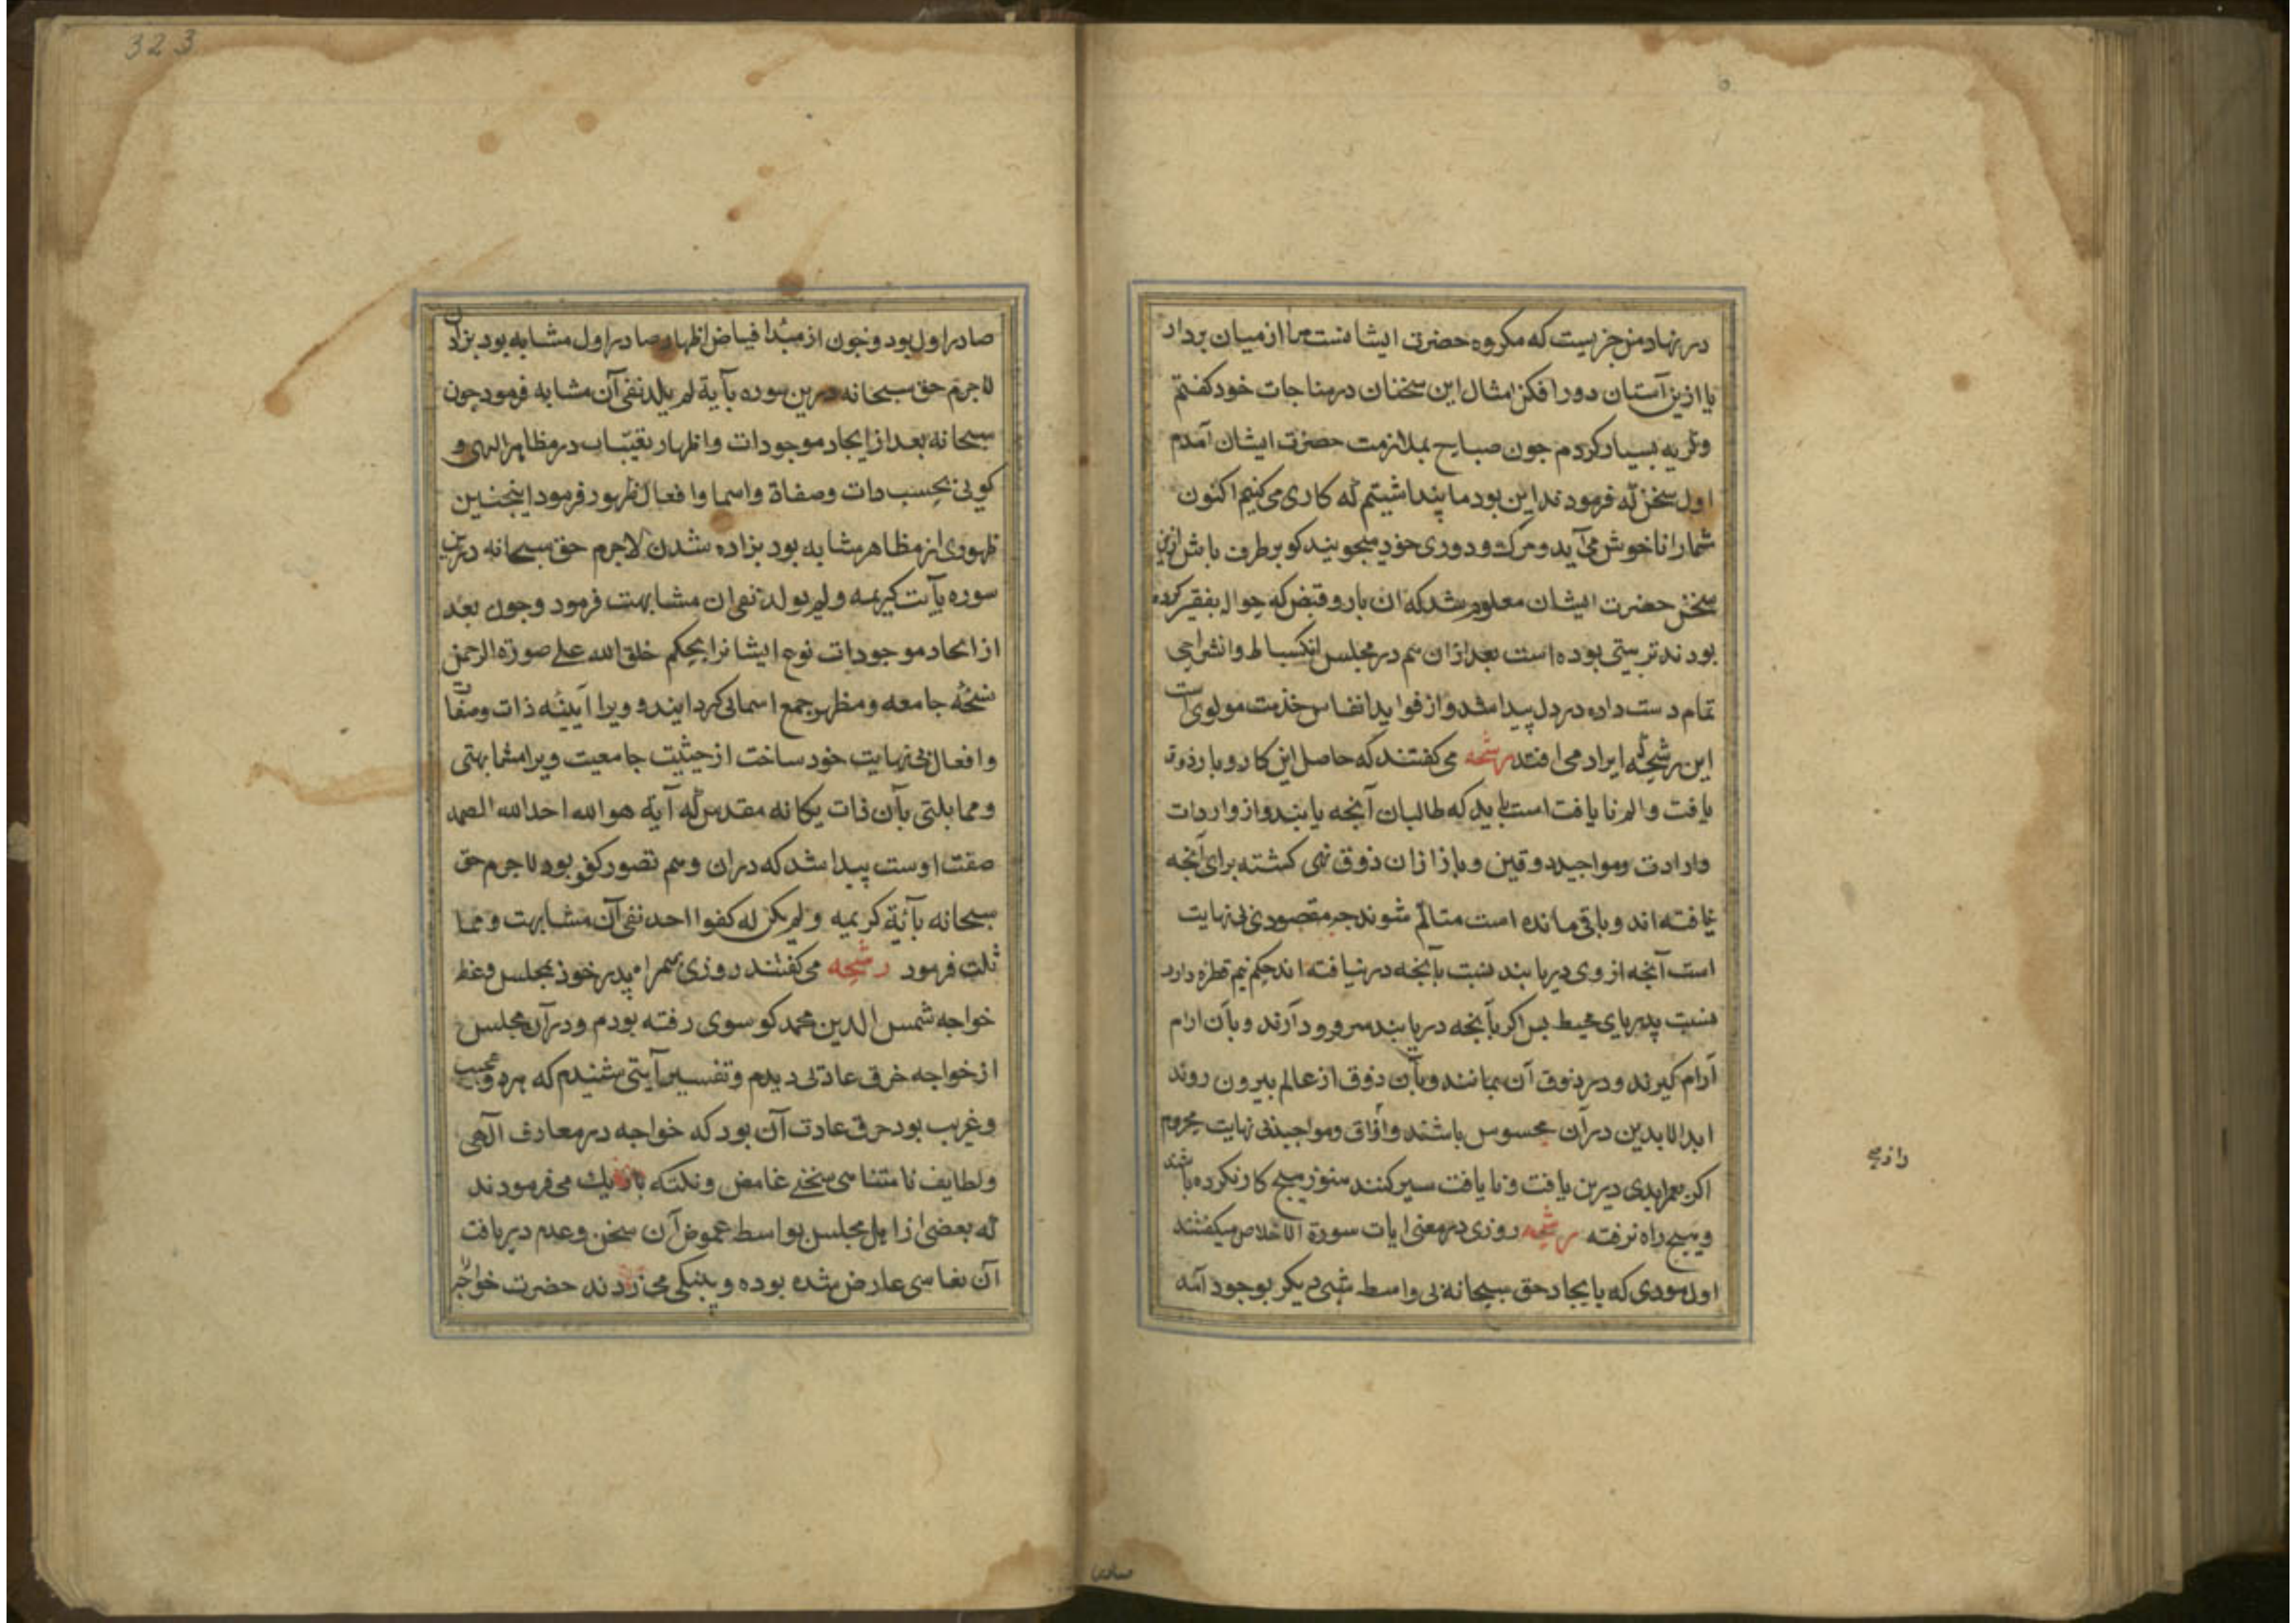 در نهاد من چزیست که مکروه حضرت ایشانست مرا از میان بردار
یا ازین آستان دور افکن امثال این سخنان در مناجات خود کفتم
وکریه بسیار کردم جون صباح بملازمت حضرت ایشان آمدم
اول سخن که فرمودند این بود ما پنداشتیم که کاری می کنیم اکنون
شمارا ناخوش می آید و مرک و دوری خود میجویند کو برطرف باش ازین
سخن حضرت ایشان معلوم شد که ان بار و قبض که حواله بفقیر کرده
بودند تربیتی بوده است بعد ازان هم در مجلس انکسباط وانشراحی
تمام دست داده در دل پیدا شد و از فواید انفاس خدمت مولوی است
این رشحه که ایراد می افتد رشحه می کفتند که حاصل این کار و بار ذوق
یافت و الم نایافت است باید که طالبان آنجه یابند و از واردات
وارادت ومواجید ذوقین و باز ازان ذوق نهی کشته برای آنجه
نیافته اند و باقی مانده است متالّم شوند جه مقصود بی نهایت
است آنجه از وی دریابند نسبت بآنجه درنیافته اند حکم نیم قطره دارد
نسبت بدریای محیط بس اکر بآنجه دریابند سر فرود آرند و بآن ارام
آرام کیرند و در ذوق آن بمانند و بآن ذوق از عالم بیرون روند
ابد الابدین در آن محبوس باشند و اذواق ومواجید بی نهایت محروم
اکر بعمر ابدی درین یافت و نایافت سیر کنند هنوز هیج کار نکرده باشند
و هیج راه نرفته رشحه روزی در معنی ایات سورة الاخلاص میکفتند
اول موری که بایجاد حق سبحانه بی واسط شیء دیکر بوجود آمد
رازمی
صادر
323
صادر اول بود و جون از مبدا فیاض اظهار صادر اول مشابه بود بزادن
لاجرم حق سبحانه درین سوره بآیة لم یلد نفی آن مشابه فرمود جون
سبحانه بعد از ایجاد موجودات واظهار تعینات در مظاهر الهی و
کونی بحسب ذات وصفاة واسما وافعال ظهور فرمود اینجنین
ظهوری از مظاهر مشابه بود بزاده شدن لاجرم حق سبحانه درین
سوره بآیت کریمه ولم یولد نفی ان مشابهت فرمود وجون بعد
از ایجاد موجودات نوع ایشانرا بحکم خلق الله علی صورة الرحمن
نسخه جامعه و مظهر جمع اسمائی کردایند و ویرا آیینه ذات وصفات
وافعال بی نهایت خود ساخت از حیثیت جامعیت ویرا مشابهتی
ومماثلتی بآن ذات یکانه مقدس که آیة هو الله احد الله الصمد
صفت اوست پیدا شد که دران وهم تصور کفو بود لاجرم حق
سبحانه بآئة کریمیه ولم یکن له کفوا احد نفی آن مشابهت ومما
ثلت فرمود رشحه می کفتند روزی همراه پدر خوذ بمجلس وعظ
خواجه شمس الدین محمد کو سوی رفته بودم ودر آن مجلس
از خواجه خرق عادتی دیدم وتفسیر آیتی شنیدم که هردو عجیب
وغریب بود حرق عادت آن بود که خواجه در معارف آلهی
ولطایف نامتناهی سخنی غامض ونکته باریک می فرمودند
که بعضی از اهل مجلس بواسط غموض آن سخن وعدم دریافت
آن نعاسی عارض شده بوده و پینکی می زدند حضرت خواجه را